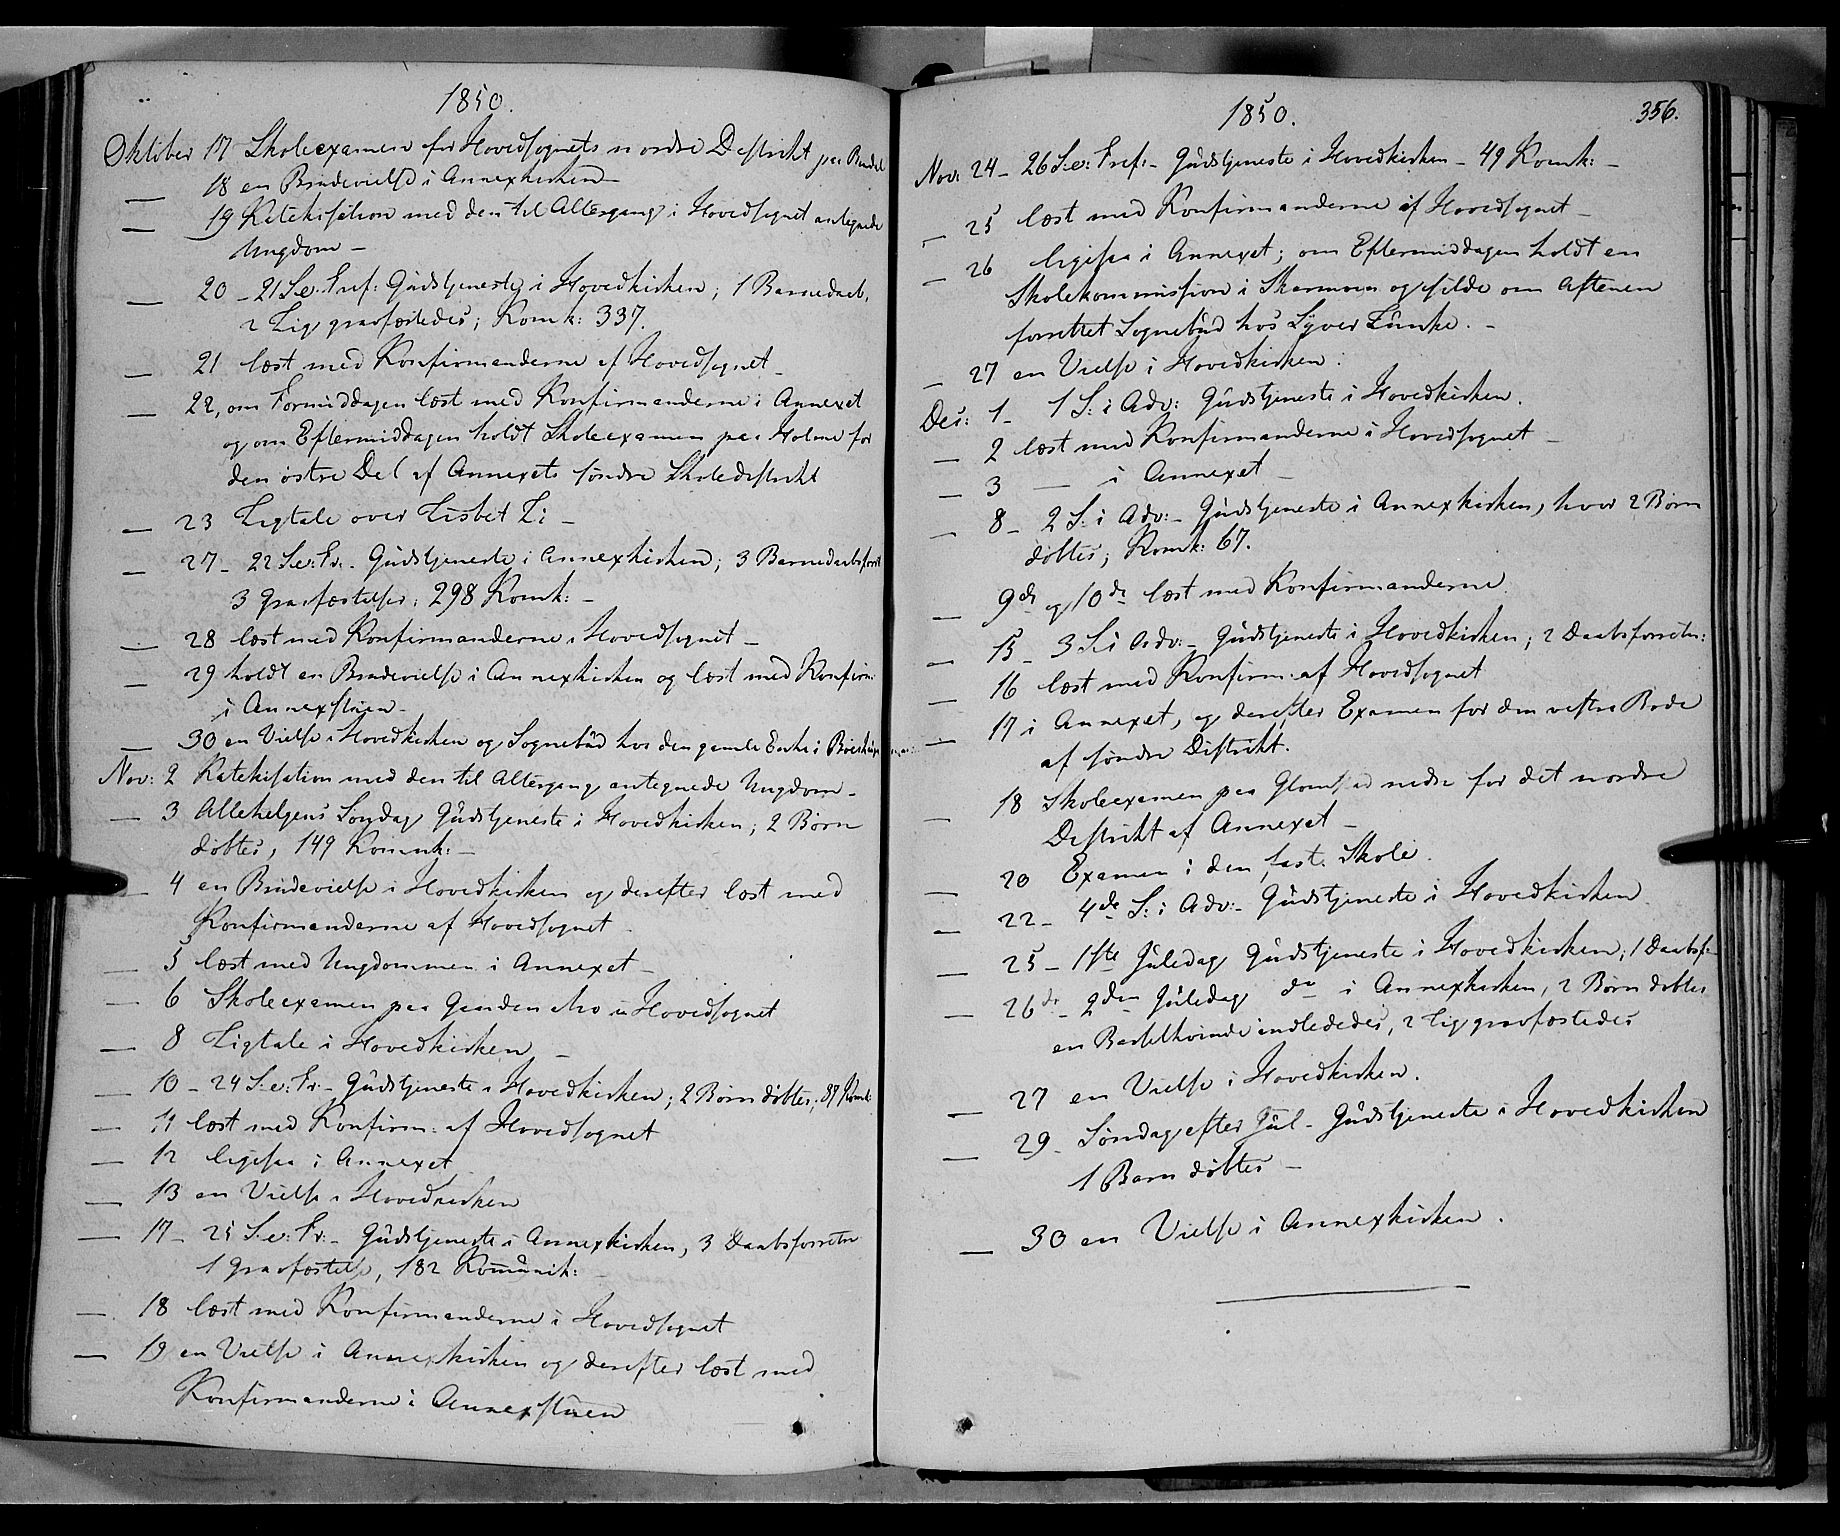 1850.
Oktober 17 Skoleexamen for Hovedsognets nordre Destrikt paa
— 18 en Brudevielse i Annexkirken —
— 19 Katekisation med den til Altergang i Hovedsognet antegnede
Ungdom —
— 20 – 21 S. e. Tref: Gudstjeneste i Hovedkirken; 1 Barnedaab,
2 Lig gravfæstedes; Komk: 337.
— 21 læst med Konfirmanderne af Hovedsognet —
— 22, om Formiddagen læst med Konfirmanderne i Annexet
og om Eftermiddagen holdt Skoleexamen paa Holme for
den østre Del af Annexets søndre Skoledistrikt
— 23 Ligtale over Lisbet Li —
— 27 – 22 S. e: Tr: – Gudstjeneste i Annexkirken; 3 Barnedaabsforret
3 Gravfæstelser; 298 Komk: —
— 28 læst med Konfirmanderne i Hovedsognet —
— 29 holdt en Brudevielse i Annexkirken og læst med Konfirm:
i Annexstuen —
— 30 en Vielse i Hovedkirken og Sognebud hos den gamle Enke i
Nov: 2 Katekisation med den til Altergang antegnede Ungdom —
— 3 Allehelgens Søndag Gudstjeneste i Hovedkirken; 2 Børn
døbtes, 149 Kommk: —
— 4 en Brudevielse i Hovedkirken og derefter læst med
Konfirmanderne af Hovedsognet
— 5 læst med Ungdommen i Annexet —
— 6 Skoleexamen paa i Hovedsognet
— 8 Ligtale i Hovedkirken —
— 10 – 24 S. e: Tr: – Gudstjeneste i Hovedkirken; 2 Børn døbtes; 87 Komk:
— 11 læst med Konfirm: af Hovedsognet
— 12 ligesaa i Annexet
— 13 en Vielse i Hovedkirken
— 17 – 25 S. e: Tr: – Gudstjeneste i Annexkirken, 3 Daabsforretn
1 Gravfæstelse, 182 Kommunik: —
— 18 læst med Konfirmanderne i Hovedsognet
— 19 en Vielse i Annexkirken og derefter læst med
Konfirmanderne i Annexstuen
1850.
356.
Nov: 24 – 26 S. e: Tref: – Gudstjeneste i Hovedkirken – 49 Komk: —
— 25 læst med Konfirmanderne af Hovedsognet —
— 26 ligesaa i Annexet; om Eftermiddagen holdt en
Skolekommission i og silde om Aftenen
forrettet Sognebud hos Syver Lunke. —
— 27 en Vielse i Hovedkirken.
Des: 1 – 1 S: i Adv: Gudstjeneste i Hovedkirken.
— 2 læst med Konfirmanderne i Hovedsognet —
— 3 — i Annexet —
— 8 – 2 S: i Adv: – Gudstjeneste i Annexkirken, hvor 2 Børn
døbtes; Komk: 67.
— 9de og 10de læst med Konfirmanderne.
— 15 – 3 S: i Adv: – Gudstjeneste i Hovedkirken; 2 Daabsforretn:
— 16 læst med Konfirm: af Hovedsognet
— 17 i Annexet, og derefter Examen for den vestre Rode
af søndre Distrikt.
— 18 Skoleexamen paa Glomstad nedre for det nordre
Destrikt af Annexet —
— 20 Examen i den fast: Skole.
— 22 – 4de S: i Adv: – Gudstjeneste i Hovedkirken.
— 25 – 1ste Juledag Gudstjeneste i Hovedkirken; 1 Daabsf:
— 26de – 2den Juledag do i Annexkirken, 2 Børn døbtes
en Barselkvinde indlededes, 2 Lig gravfæstedes
— 27 en Vielse i Hovedkirken.
— 29 – Søndag efter Jul – Gudstjeneste i Hovedkirken
1 Barn døbtes —
— 30 en Vielse i Annexkirken.